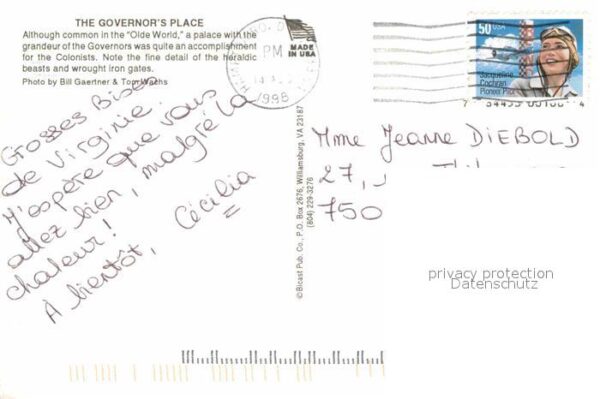 THE GOVERNOR'S PLACE
Although common in the "Olde World," a palace with the
grandeur of the Governors was quite an accomplishment
for the Colonists. Note the fine detail of the heraldic
beasts and wrought iron gates.
Photo by Bill Gaertner & Tom Wachs
Grosses Bises
de Virginie.
J'espère que vous
allez bien, malgré la
chaleur!
À bientôt, Cécilia
©Bicast Pub. Co., P.O. Box 2676, Williamsburg, VA 23187
(804) 229-3276
PM
1995
MADE
IN USA
50 USA
Jacqueline
Cochran
Pioneer Pilot
Mme Jeanne DIEBOLD
27,
750
privacy protection
Datenschutz